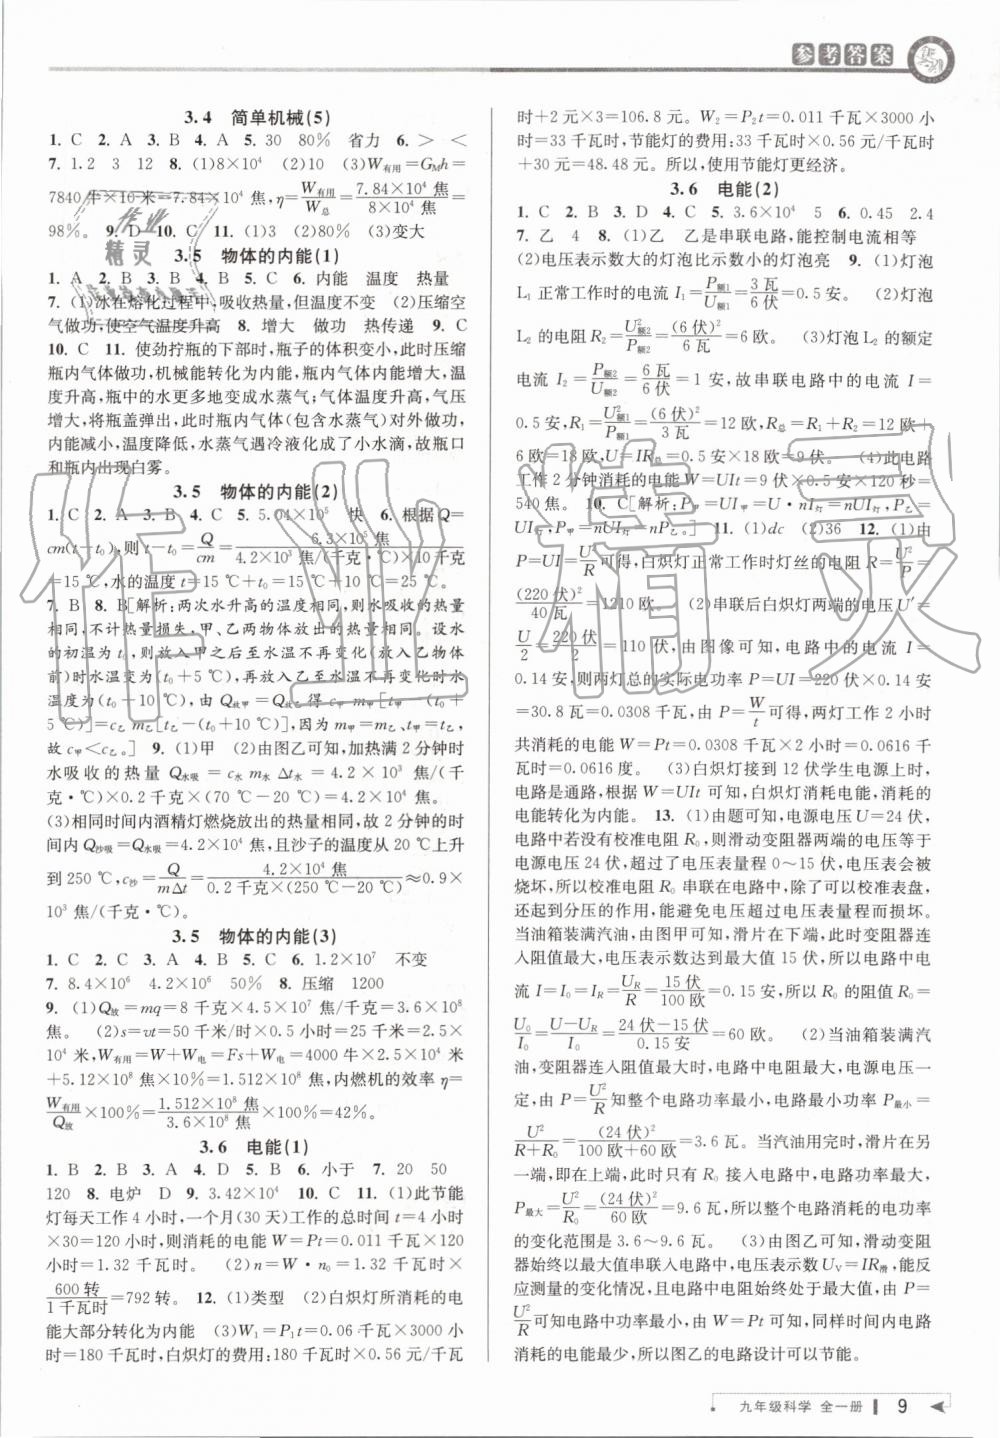 参考答案
3.4 简单机械(5)
1. C 2. A 3. B 4. A 5. 30 80% 省力 6. > <
7. 1.2 3 12 8. (1)8×10⁴ (2)10 (3)W有用=GMh=
7840牛×10米=7.84×10⁴焦,η=W有用/W总=7.84×10⁴焦/8×10⁴焦=
98%。 9. D 10. C 11. (1)3 (2)80% (3)变大
3.5 物体的内能(1)
1. A 2. B 3. B 4. C 5. C 6. 内能 温度 热量
7. (1)冰在熔化过程中,吸收热量,但温度不变 (2)压缩空
气做功,使空气温度升高 8. 增大 做功 热传递 9. C
10. C 11. 使劲拧瓶的下部时,瓶子的体积变小,此时压缩
瓶内气体做功,机械能转化为内能,瓶内气体内能增大,温
度升高,瓶中的水更多地变成水蒸气;气体温度升高,气压
增大,将瓶盖弹出,此时瓶内气体(包含水蒸气)对外做功,
内能减小,温度降低,水蒸气遇冷液化成了小水滴,故瓶口
和瓶内出现白雾。
3.5 物体的内能(2)
1. C 2. A 3. A 4. C 5. 5.04×10⁵ 快 6. 根据Q=
cm(t−t₀),则t−t₀=Q/cm=6.3×10⁵焦/4.2×10³焦/(千克·℃)×10千克
=15℃,水的温度t=15℃+t₀=15℃+10℃=25℃。
7. B 8. B[解析:两次水升高的温度相同,则水吸收的热量
相同,不计热量损失,甲、乙两物体放出的热量相同。设水
的初温为t₀,则放入甲之后至水温不再变化(放入乙物体
前)时水温变为(t₀+5℃),再放入乙至水温不再变化时水
温度为(t₀+10℃),由Q放甲=Q放乙得c甲m甲[t甲−(t₀+
5℃)]=c乙m乙[t乙−(t₀+10℃)],因为m甲=m乙、t甲=t乙,
故c甲<c乙。] 9. (1)甲 (2)由图乙可知,加热满2分钟时
水吸收的热量Q水吸=c水m水Δt水=4.2×10³焦/(千
克·℃)×0.2千克×(70℃−20℃)=4.2×10⁴焦。
(3)相同时间内酒精灯燃烧放出的热量相同,故2分钟的时
间内Q沙吸=Q水吸=4.2×10⁴焦,且沙子的温度从20℃上升
到250℃,c沙=Q/mΔt=4.2×10⁴焦/0.2千克×(250℃−20℃)≈0.9×
10³焦/(千克·℃)。
3.5 物体的内能(3)
1. C 2. C 3. A 4. B 5. C 6. 1.2×10⁷ 不变
7. 8.4×10⁶ 4.2×10⁶ 50% 8. 压缩 1200
9. (1)Q放=mq=8千克×4.5×10⁷焦/千克=3.6×10⁸
焦。 (2)s=vt=50千米/时×0.5小时=25千米=2.5×
10⁴米,W有用=W+W电=Fs+W电=4000牛×2.5×10⁴米
+5.12×10⁸焦×10%=1.512×10⁸焦,内燃机的效率η=
W有用/Q放×100%=1.512×10⁸焦/3.6×10⁸焦×100%=42%。
3.6 电能(1)
1. B 2. B 3. A 4. D 5. B 6. 小于 7. 20 50
120 8. 电炉 D 9. 3.42×10⁴ 10. C 11. (1)此节能
灯每天工作4小时,一个月(30天)工作的总时间t=4小时
×30=120小时,则消耗的电能W=Pt=0.011千瓦×120
小时=1.32千瓦时。 (2)n=W·n₀=1.32千瓦时×
600转/1千瓦时=792转。 12. (1)类型 (2)白炽灯所消耗的电
能大部分转化为内能 (3)W₁=P₁t=0.06千瓦×3000小
时=180千瓦时,白炽灯的费用:180千瓦时×0.56元/千瓦
时+2元×3=106.8元。W₂=P₂t=0.011千瓦×3000小
时=33千瓦时,节能灯的费用:33千瓦时×0.56元/千瓦时
+30元=48.48元。所以,使用节能灯更经济。
3.6 电能(2)
1. C 2. B 3. D 4. C 5. 3.6×10⁴ 5 6. 0.45 2.4
7. 乙 4 8. (1)乙 乙是串联电路,能控制电流相等
(2)电压表示数大的灯泡比示数小的灯泡亮 9. (1)灯泡
L₁正常工作时的电流I₁=P额1/U额1=3瓦/6伏=0.5安。 (2)灯泡
L₂的电阻R₂=U²额2/P额2=(6伏)²/6瓦=6欧。 (3)灯泡L₂的额定
电流I₂=P额2/U额2=6瓦/6伏=1安,故串联电路中的电流I=
0.5安,R₁=U²额1/P额1=(6伏)²/3瓦=12欧,R总=R₁+R₂=12欧+
6欧=18欧,U=IR总=0.5安×18欧=9伏。 (4)此电路
工作2分钟消耗的电能W=UIt=9伏×0.5安×120秒=
540焦。 10. C[解析:P甲=UI甲=U·nI灯=nUI灯,P乙=
UI灯,P甲=nUI灯=nP乙。] 11. (1)dc (2)36 12. (1)由
P=UI=U²/R可得,白炽灯正常工作时灯丝的电阻R=U²/P=
(220伏)²/40瓦=1210欧。 (2)串联后白炽灯两端的电压U′=
U/2=220伏/2=110伏,由图像可知,电路中的电流I=
0.14安,则两灯总的实际电功率P=UI=220伏×0.14安
=30.8瓦=0.0308千瓦,由P=W/t可得,两灯工作2小时
共消耗的电能W=Pt=0.0308千瓦×2小时=0.0616千瓦
时=0.0616度。 (3)白炽灯接到12伏学生电源上时,
电路是通路,根据W=UIt可知,白炽灯消耗电能,消耗的
电能转化为内能。 13. (1)由题可知,电源电压U=24伏,
电路中若没有校准电阻R₀,则滑动变阻器两端的电压等于
电源电压24伏,超过了电压表量程0~15伏,电压表会被
烧坏,所以校准电阻R₀串联在电路中,除了可以校准表盘,
还起到分压的作用,能避免电压超过电压表量程而损坏。
当油箱装满汽油,由图甲可知,滑片在下端,此时变阻器连
入阻值最大,电压表示数达到最大值15伏,所以电路中电
流I=I₀=I_R=U_R/R=15伏/100欧=0.15安,所以R₀的阻值R₀=
U₀/I₀=U−U_R/I₀=24伏−15伏/0.15安=60欧。 (2)当油箱装满汽
油,变阻器连入阻值最大时,电路中电阻最大,电源电压一
定,由P=U²/R知整个电路功率最小,最小功率P最小=
U²/R+R₀=(24伏)²/100欧+60欧=3.6瓦。当汽油用完时,滑片在另
一端,即在上端,此时只有R₀接入电路中,电路功率最大,
P最大=U²/R₀=(24伏)²/60欧=9.6瓦,所以整个电路消耗的电功率
的变化范围是3.6~9.6瓦。 (3)由图乙可知,滑动变阻
器始终以最大值串联入电路中,电压表示数U_V=IR滑,能反
应测量的变化情况,且电路中电阻始终处于最大值。由P=
U²/R可知电路中功率最小,由W=Pt可知,同样时间内电路
消耗的电能最少,所以图乙的电路设计可以节能。
九年级科学 全一册 9
作业精灵